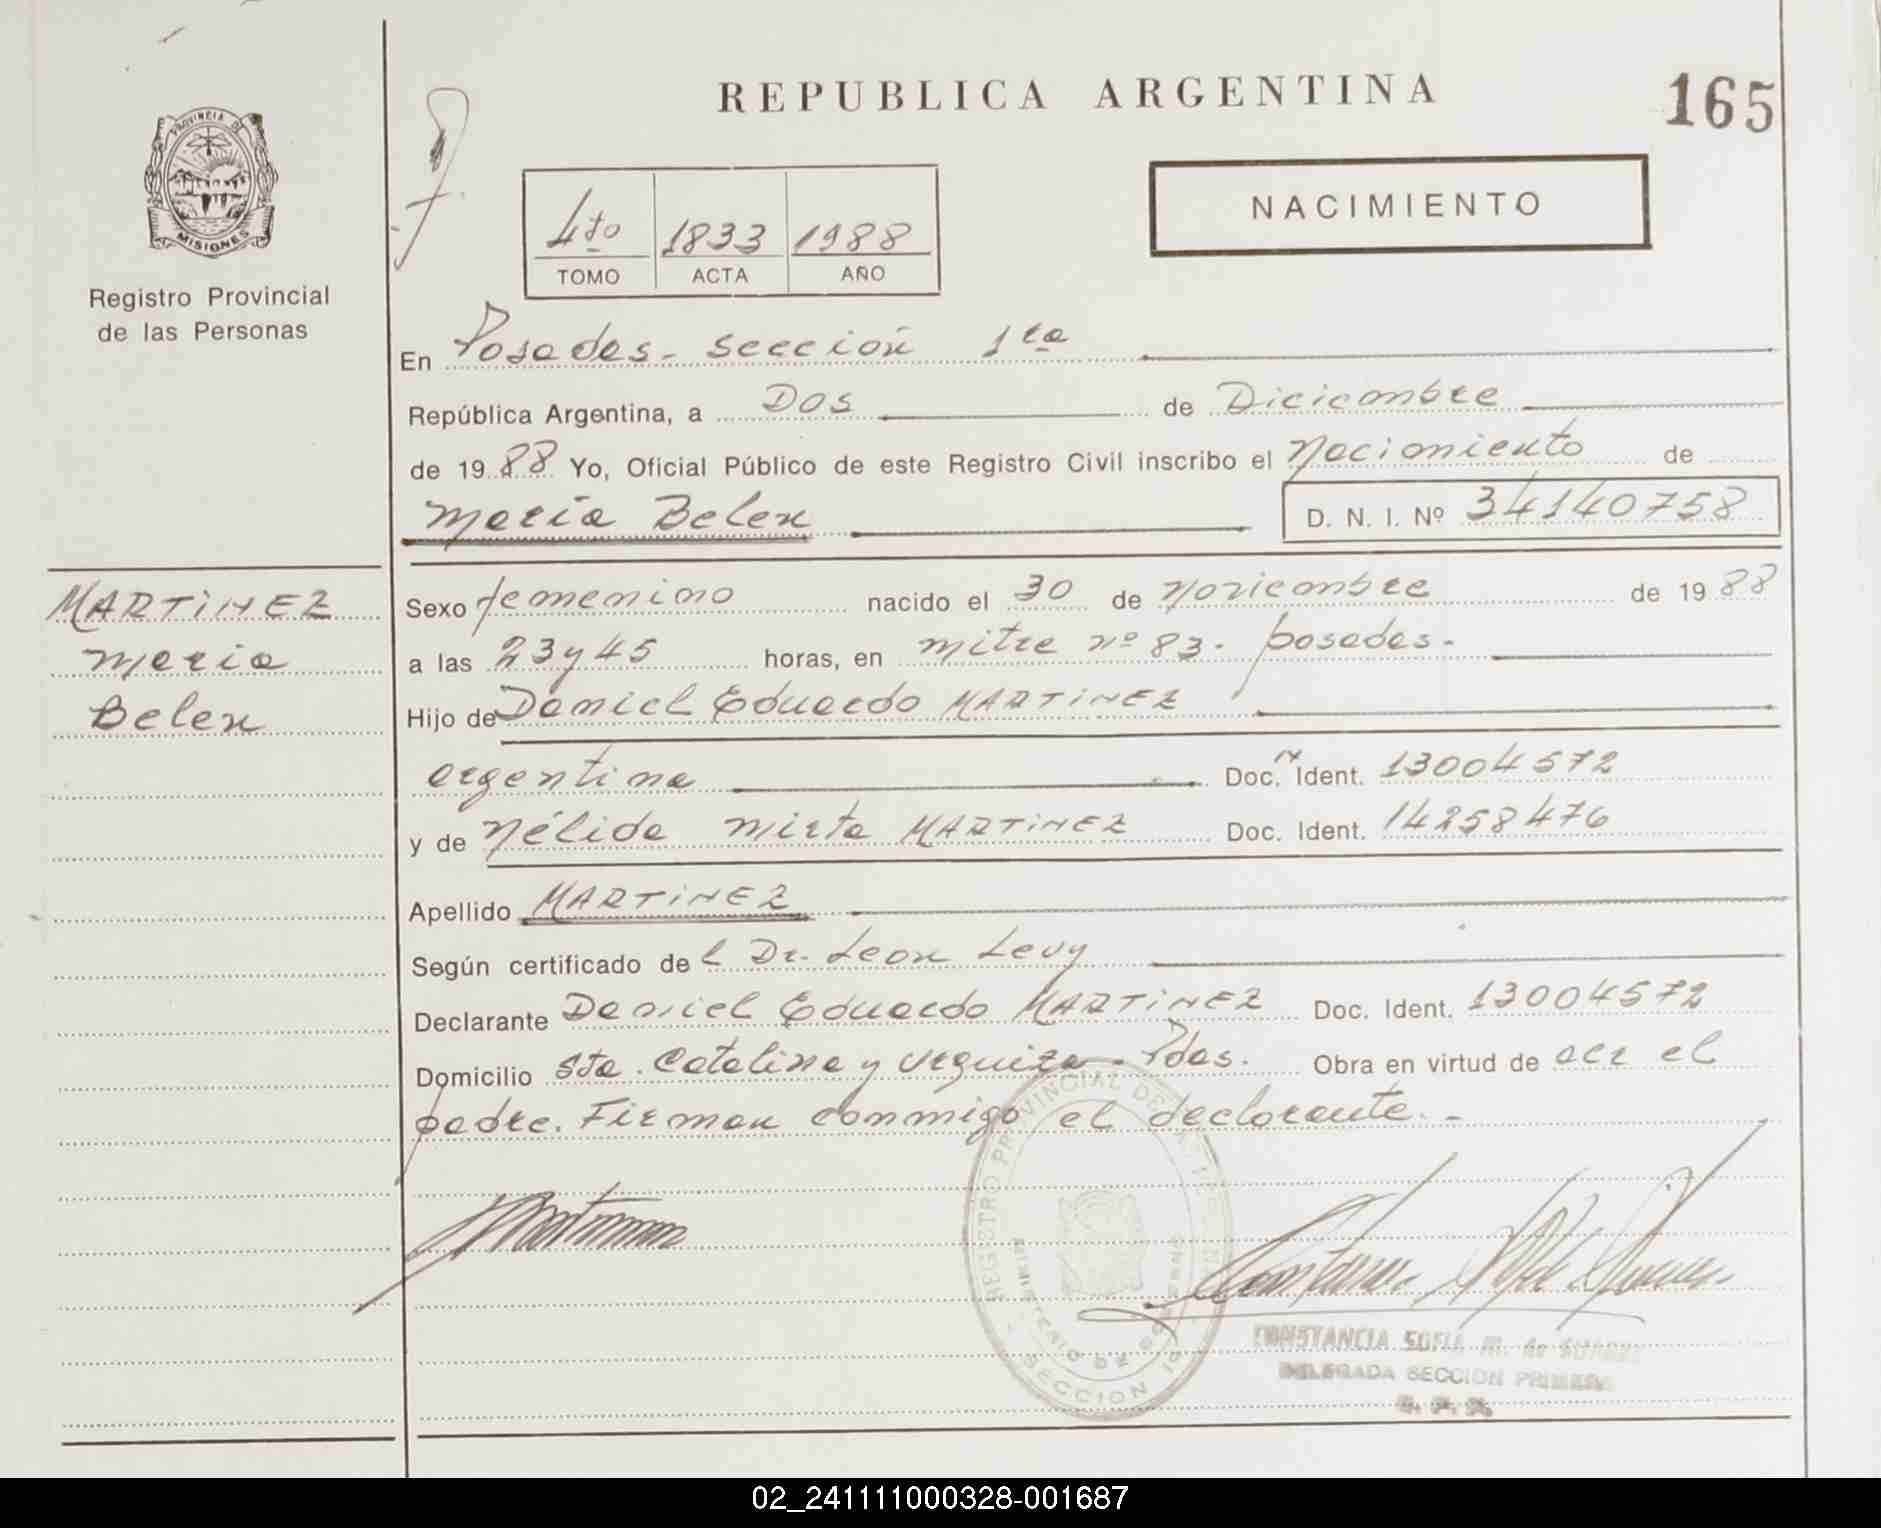 REPUBLICA ARGENTINA
165
PROVINCIA DE
MISIONES
Registro Provincial
de las Personas
4to 1833 1988
TOMO ACTA AÑO
NACIMIENTO
En Posadas - sección 1ra
República Argentina, a Dos de Diciembre
de 1988 Yo, Oficial Público de este Registro Civil inscribo el Nacimiento de
María Belen D. N. I. Nº 34140758
MARTINEZ
Maria
Belen
Sexo femenino nacido el 30 de Noviembre de 1988
a las 23 y 45 horas, en Mitre nº 83. posadas.
Hijo de Daniel Eduardo MARTINEZ
argentina Doc. Ident. 13004572
y de Nélida Mirta MARTINEZ Doc. Ident. 14258476
Apellido MARTINEZ
Según certificado del Dr. Leon Levy
Declarante Daniel Eduardo MARTINEZ Doc. Ident. 13004572
Domicilio Sta. Catalina y Urquiza - Pdas. Obra en virtud de ser el
padre. Firman conmigo el declarante. -
REGISTRO PROVINCIAL DE
MINISTERIO DE GOBIERNO
SECCION 1a
CONSTANCIA SOFIA M. de
DELEGADA SECCION PRIMERA
02_241111000328-001687